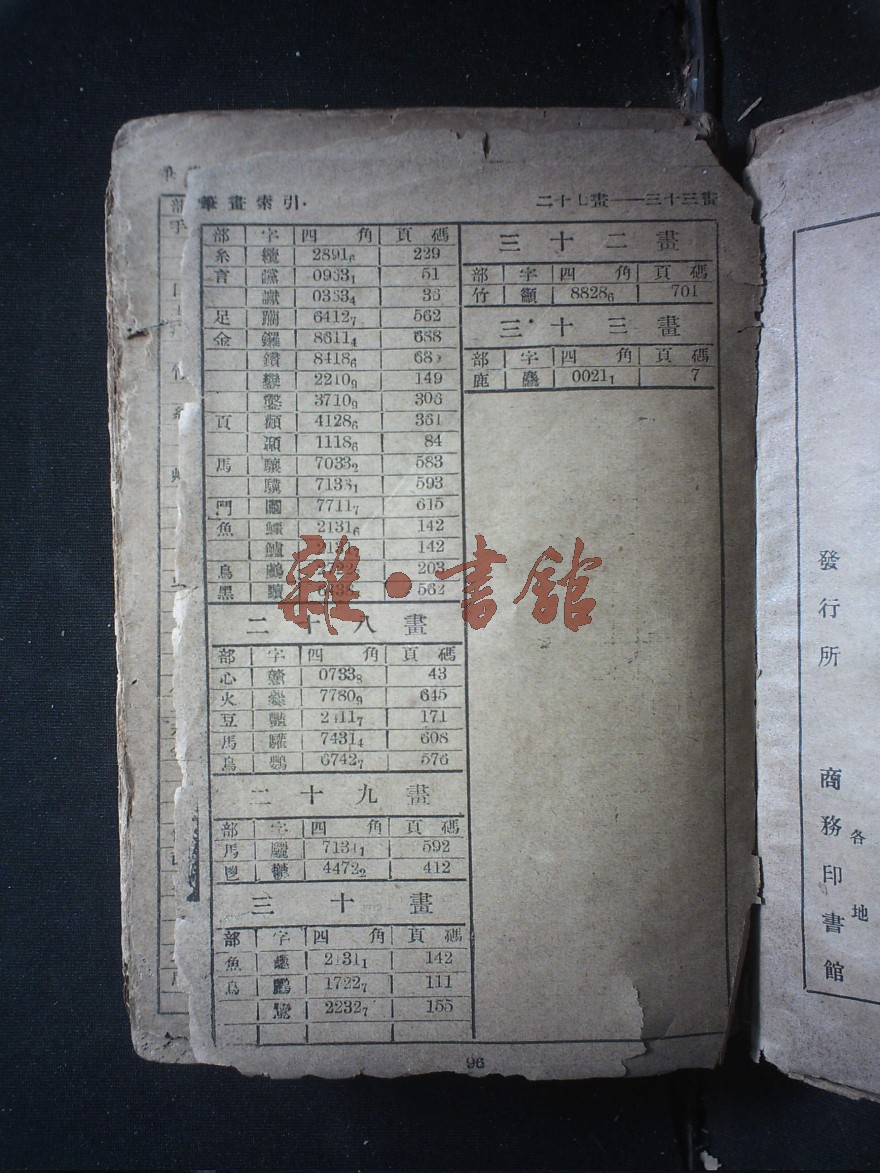 筆畫索引
二十七畫——三十三畫
部 字 四角 頁碼
糸 纜 2891₆ 229
言 讜 0963₁ 51
讞 0363₄ 36
足 6412₇ 562
金 钁 8611₄ 688
鑽 8418₆
鑾 2210₉ 149
鑿 3710₉ 306
頁 顴 4128₆ 361
顳 1118₆ 84
馬 驤 7033₂ 583
驥 7133₁ 593
鬥 7711₇ 615
魚 鱷 2131₆ 142
鱸 142
鳥 203
黑 562
二十八畫
部 字 四角 頁碼
心 戇 0733₈ 43
火 爨 7780₉ 645
豆 豔 2411₇ 171
馬 驩 7431₄ 608
鳥 鸚 6742₇ 576
二十九畫
部 字 四角 頁碼
馬 驪 7131₁ 592
鬯 鬱 4472₂ 412
三十畫
部 字 四角 頁碼
魚 2131₁ 142
鳥 鸝 1722₇ 111
鸞 2232₇ 155
三十二畫
部 字 四角 頁碼
竹 籲 8828₆ 701
三十三畫
部 字 四角 頁碼
鹿 麤 0021₁ 7
96
雜·書館
發行所
商務印書館
各地